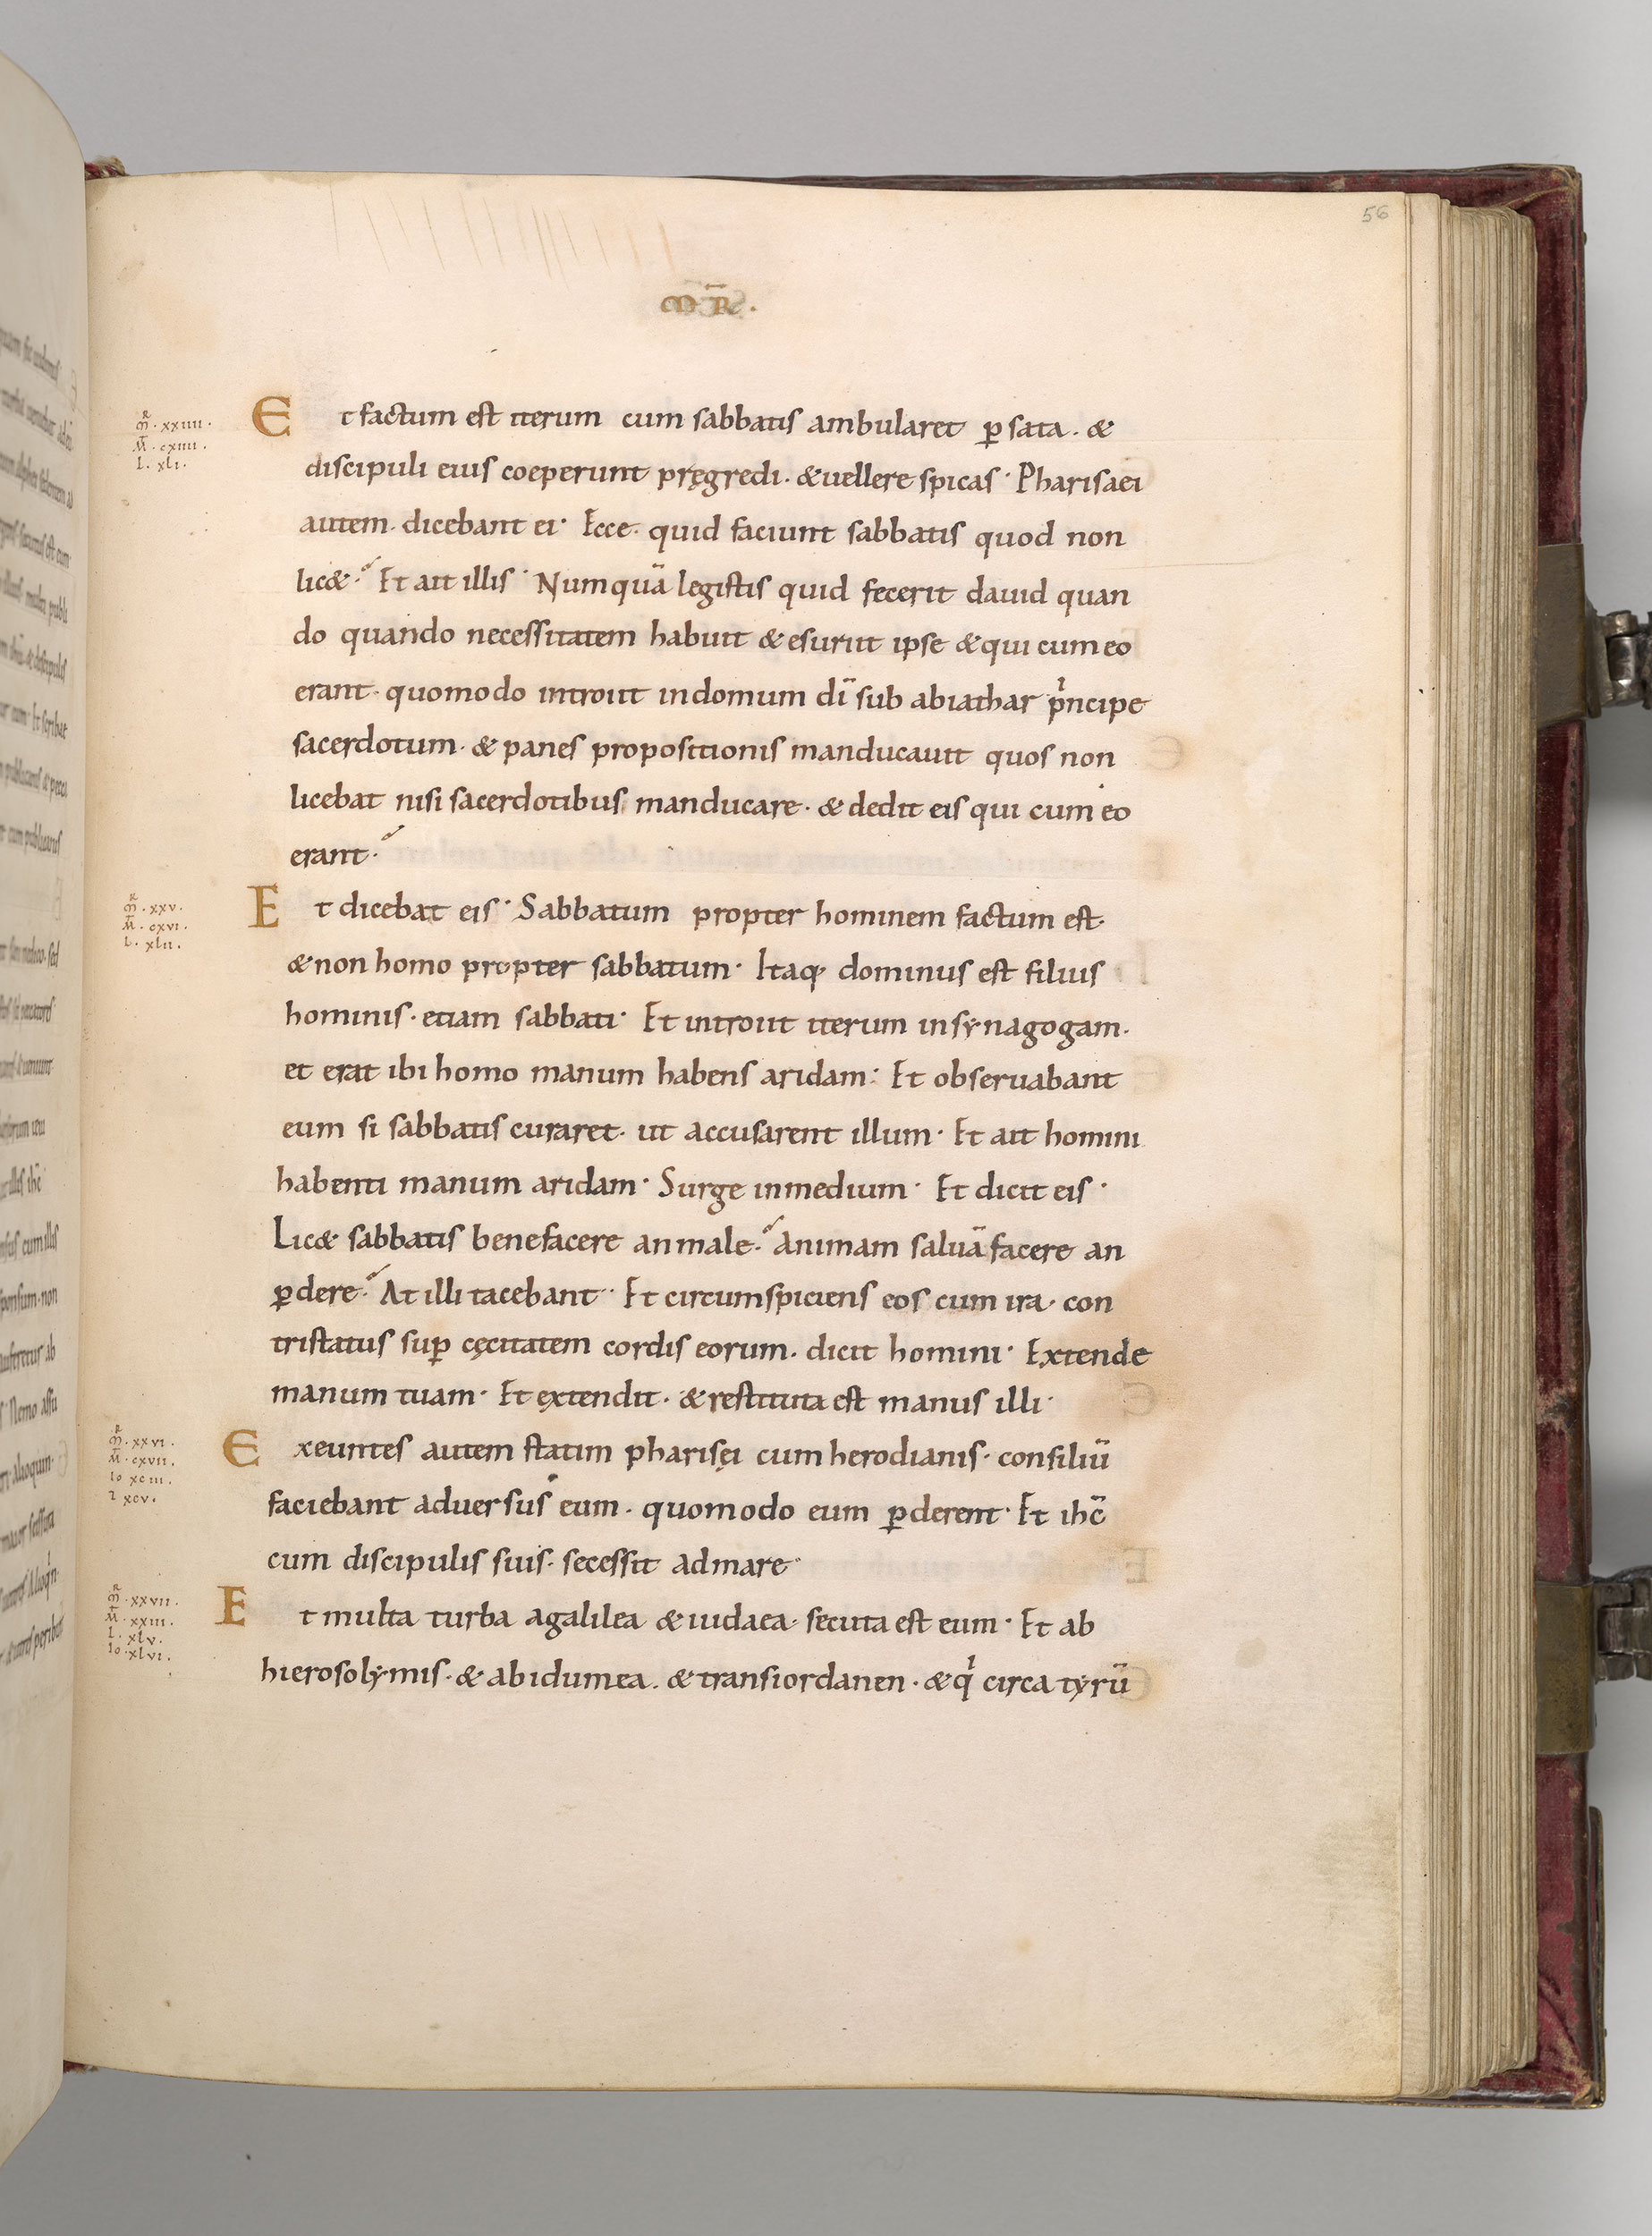 56
M R̄ .
Et factum est iterum cum sabbatis ambularet ꝑ sata . &
discipuli eius coeperunt pręgredi . & uellere spicas · Pharisaei
autem . dicebant ei · Ecce . quid faciunt sabbatis quod non
lic& · Et ait illis · Numquā legistis quid fecerit dauid quan
do quando necessitatem habuit & esuriit ipse & qui cum eo
erant · quomodo introiit in domum dī sub abiathar pͥncipe
sacerdotum · & panes propositionis manducauit quos non
licebat nisi sacerdotibus manducare · & dedit eis qui cum eo
erant ·
ṁ · xxiiii ·
M̄ · cxiiii ·
L · xli ·
Et dicebat eis · Sabbatum propter hominem factum est ·
& non homo propter sabbatum · Itaq· dominus est filius
hominis · etiam sabbati · Et introiit iterum in synagogam .
et erat ibi homo manum habens aridam : Et obseruabant
eum si sabbatis curaret · ut accusarent illum · Et ait homini
habenti manum aridam · Surge in medium · Et dicit eis ·
Lic& sabbatis benefacere an male · animam saluā facere an
ꝑdere · At illi tacebant · Et circumspiciens eos cum ira · con
tristatus suꝑ cęcitatem cordis eorum . dicit homini · Extende
manum tuam · Et extendit . & restituta est manus illi ·
ṁ · xxv ·
M̄ · cxvi ·
L · xlii ·
Exeuntes autem statim pharisęi cum herodianis · consiliū
faciebant aduersus eum . quomodo eum ꝑderent · Et ihc̄
cum discipulis suis · secessit ad mare ·
ṁ · xxvi ·
M̄ · cxvii ·
Io xciii .
L xcv .
Et multa turba a galilea & iudaea · secuta est eum · Et ab
hierosolymis · & ab idumea . & trans iordanen . & qͥ circa tyrū
ṁ · xxvii ·
M̄ · xxiii ·
L · xlv ·
Io · xlvi .